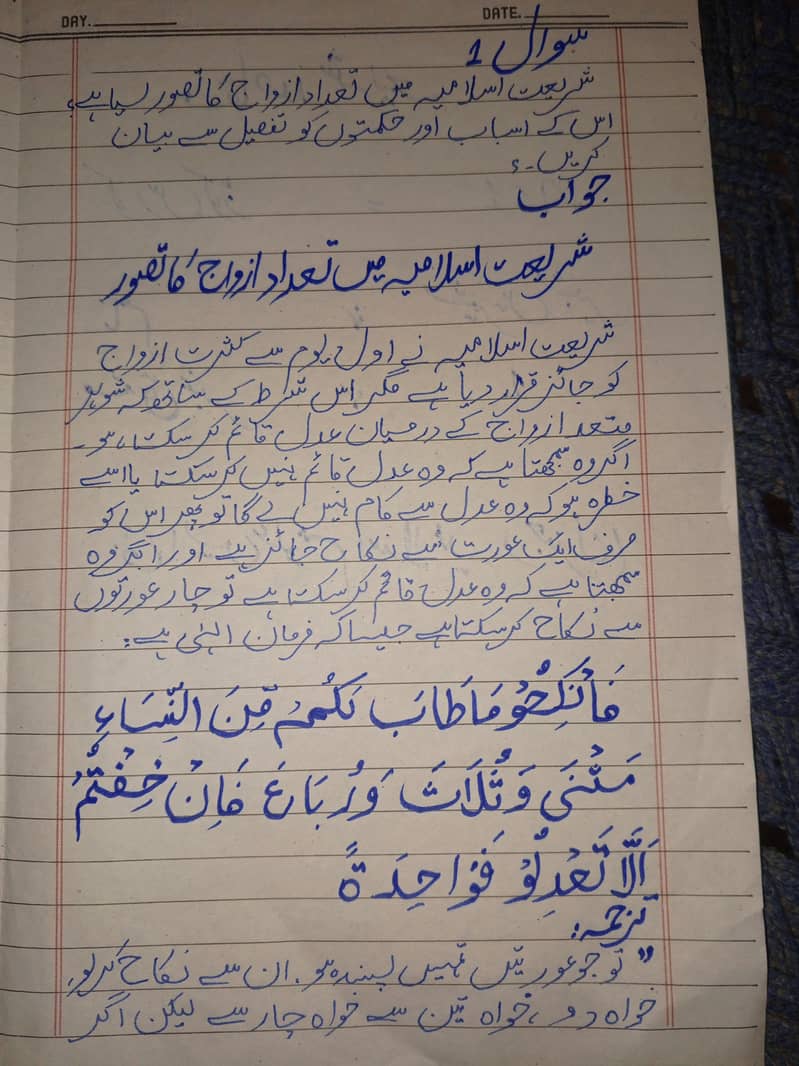 DAY.
DATE.
سوال 1
شریعت اسلامیہ میں تعداد ازواج کا تصور کیا ہے؟
اس کے اسباب اور حکمتوں کو تفصیل سے بیان
کریں۔؟
جواب
شریعت اسلامیہ میں تعداد ازواج کا تصور
شریعت اسلامیہ نے اول یوم سے کثرت ازواج
کو جائز قرار دیا ہے مگر اس شرط کے ساتھ کہ شوہر
متعد ازواج کے درمیان عدل قائم کر سکتا ہو۔
اگر وہ سمجھتا ہے کہ وہ عدل قائم نہیں کر سکتا یا اسے
خطرہ ہو کے وہ عدل سے کام نہیں لے گا تو پھر اس کو
صرف ایک عورت سے نکاح جائز ہے اور اگر وہ
سمجھتا ہے کہ وہ عدل قائم کر سکتا ہے تو چار عورتوں
سے نکاح کر سکتا ہے جیسا کہ فرمان الہٰی ہے:
فَأنْكِحُوْ مَا طَابَ لَكُمْ مِّنَ النِّسَاءِ
مَثْنَى وَثُلَاثَ وَرُبَاعَ فَاِنْ خِفْتُمْ
اَلَّا تَعْدِلُوْ فَوَاحِدَةً
ترجمہ:
" تو جو عورتیں تمہیں پسند ہو. ان سے نکاح کرلو.
خواہ دو ، خواہ تین سے خواہ چار سے لیکن اگر